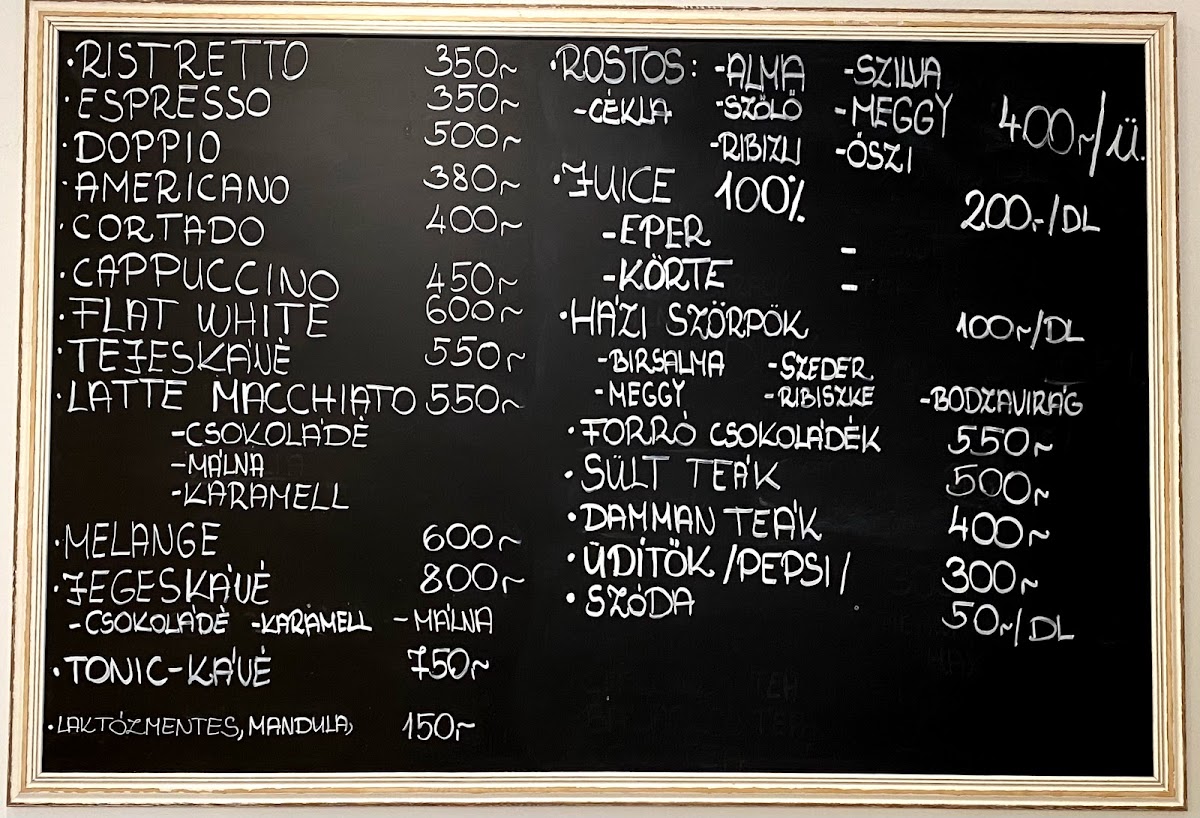 ·RISTRETTO 350.-
·ESPRESSO 350.-
·DOPPIO 500.-
·AMERICANO 380.-
·CORTADO 400.-
·CAPPUCCINO 450.-
·FLAT WHITE 600.-
·TEJESKÁVÉ 550.-
·LATTE MACCHIATO 550.-
-CSOKOLÁDÉ
-MÁLNA
-KARAMELL
·MELANGE 600.-
·JEGESKÁVÉ 800.-
-CSOKOLÁDÉ -KARAMELL -MÁLNA
·TONIC-KÁVÉ 750.-
·LAKTÓZMENTES, MANDULA, 150.-
·ROSTOS: -ALMA -SZILVA
-CÉKLA -SZŐLŐ -MEGGY 400.-/Ü.
-RIBIZLI -ŐSZI
·JUICE 100% 200.-/DL
-EPER -
-KÖRTE -
·HÁZI SZÖRPÖK 100.-/DL
-BIRSALMA -SZEDER
-MEGGY -RIBISZKE -BODZAVIRÁG
·FORRÓ CSOKOLÁDÉK 550.-
·SÜLT TEÁK 500.-
·DAMMAN TEÁK 400.-
·ÜDÍTŐK /PEPSI/ 300.-
·SZÓDA 50.-/DL